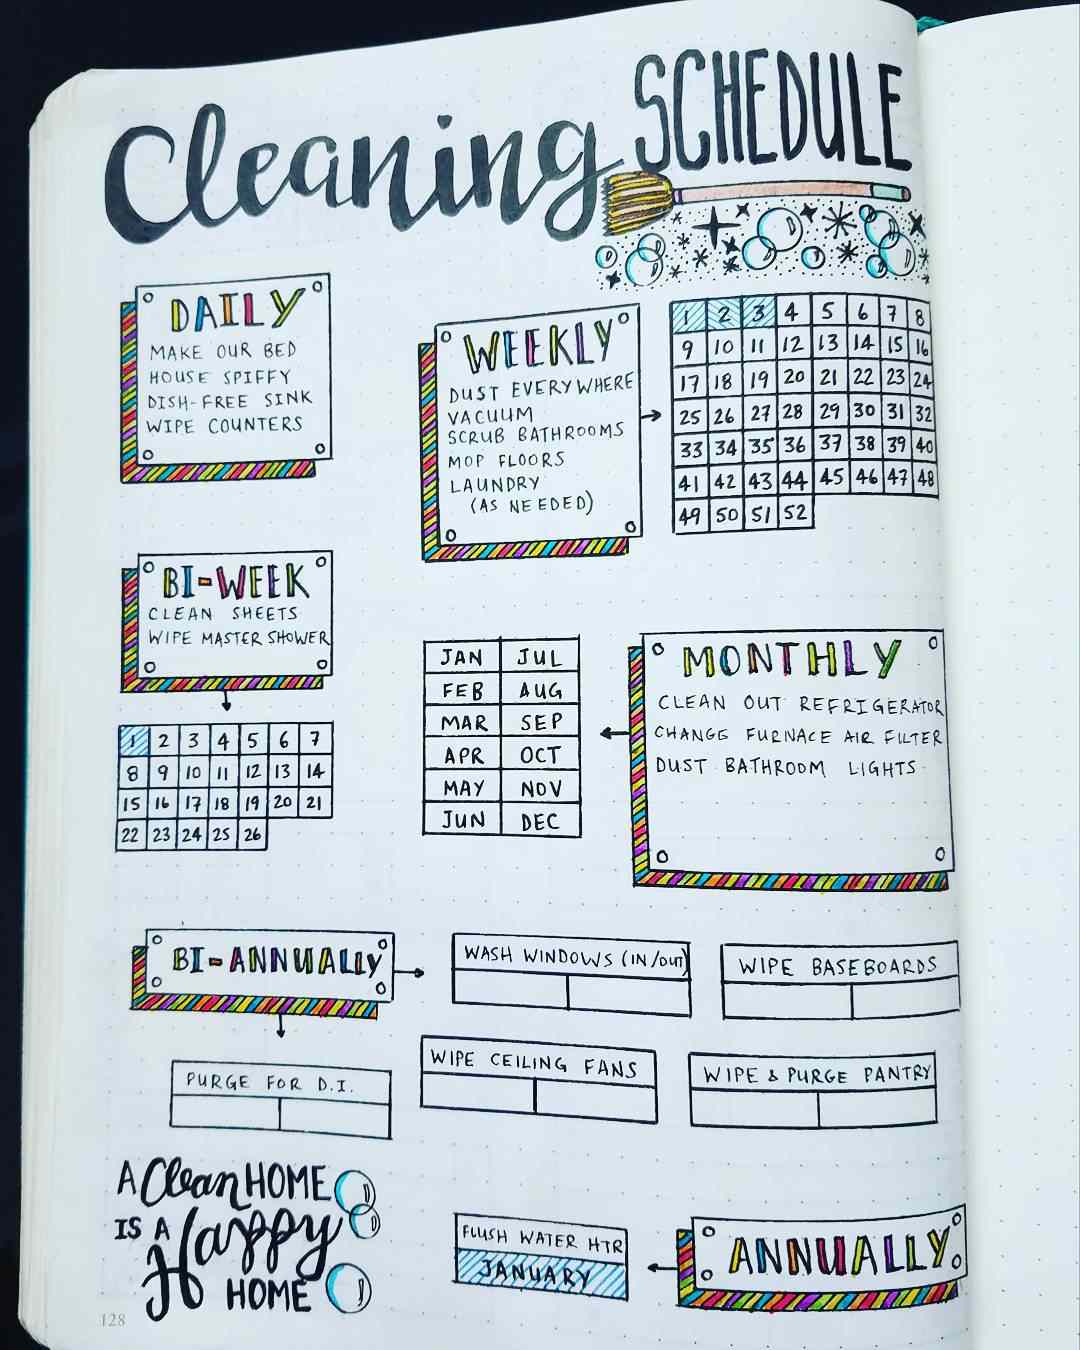 Cleaning SCHEDULE
DAILY
MAKE OUR BED
HOUSE SPIFFY
DISH-FREE SINK
WIPE COUNTERS
WEEKLY
DUST EVERYWHERE
VACUUM
SCRUB BATHROOMS
MOP FLOORS
LAUNDRY
(AS NEEDED)
1 2 3 4 5 6 7 8
9 10 11 12 13 14 15 16
17 18 19 20 21 22 23 24
25 26 27 28 29 30 31 32
33 34 35 36 37 38 39 40
41 42 43 44 45 46 47 48
49 50 51 52
BI-WEEK
CLEAN SHEETS
WIPE MASTER SHOWER
1 2 3 4 5 6 7
8 9 10 11 12 13 14
15 16 17 18 19 20 21
22 23 24 25 26
JAN JUL
FEB AUG
MAR SEP
APR OCT
MAY NOV
JUN DEC
MONTHLY
CLEAN OUT REFRIGERATOR
CHANGE FURNACE AIR FILTER
DUST BATHROOM LIGHTS
BI-ANNUALLY
WASH WINDOWS (IN/OUT)
WIPE BASEBOARDS
PURGE FOR D.I.
WIPE CEILING FANS
WIPE & PURGE PANTRY
A Clean HOME
IS A Happy
HOME
FLUSH WATER HTR
JANUARY
ANNUALLY
128